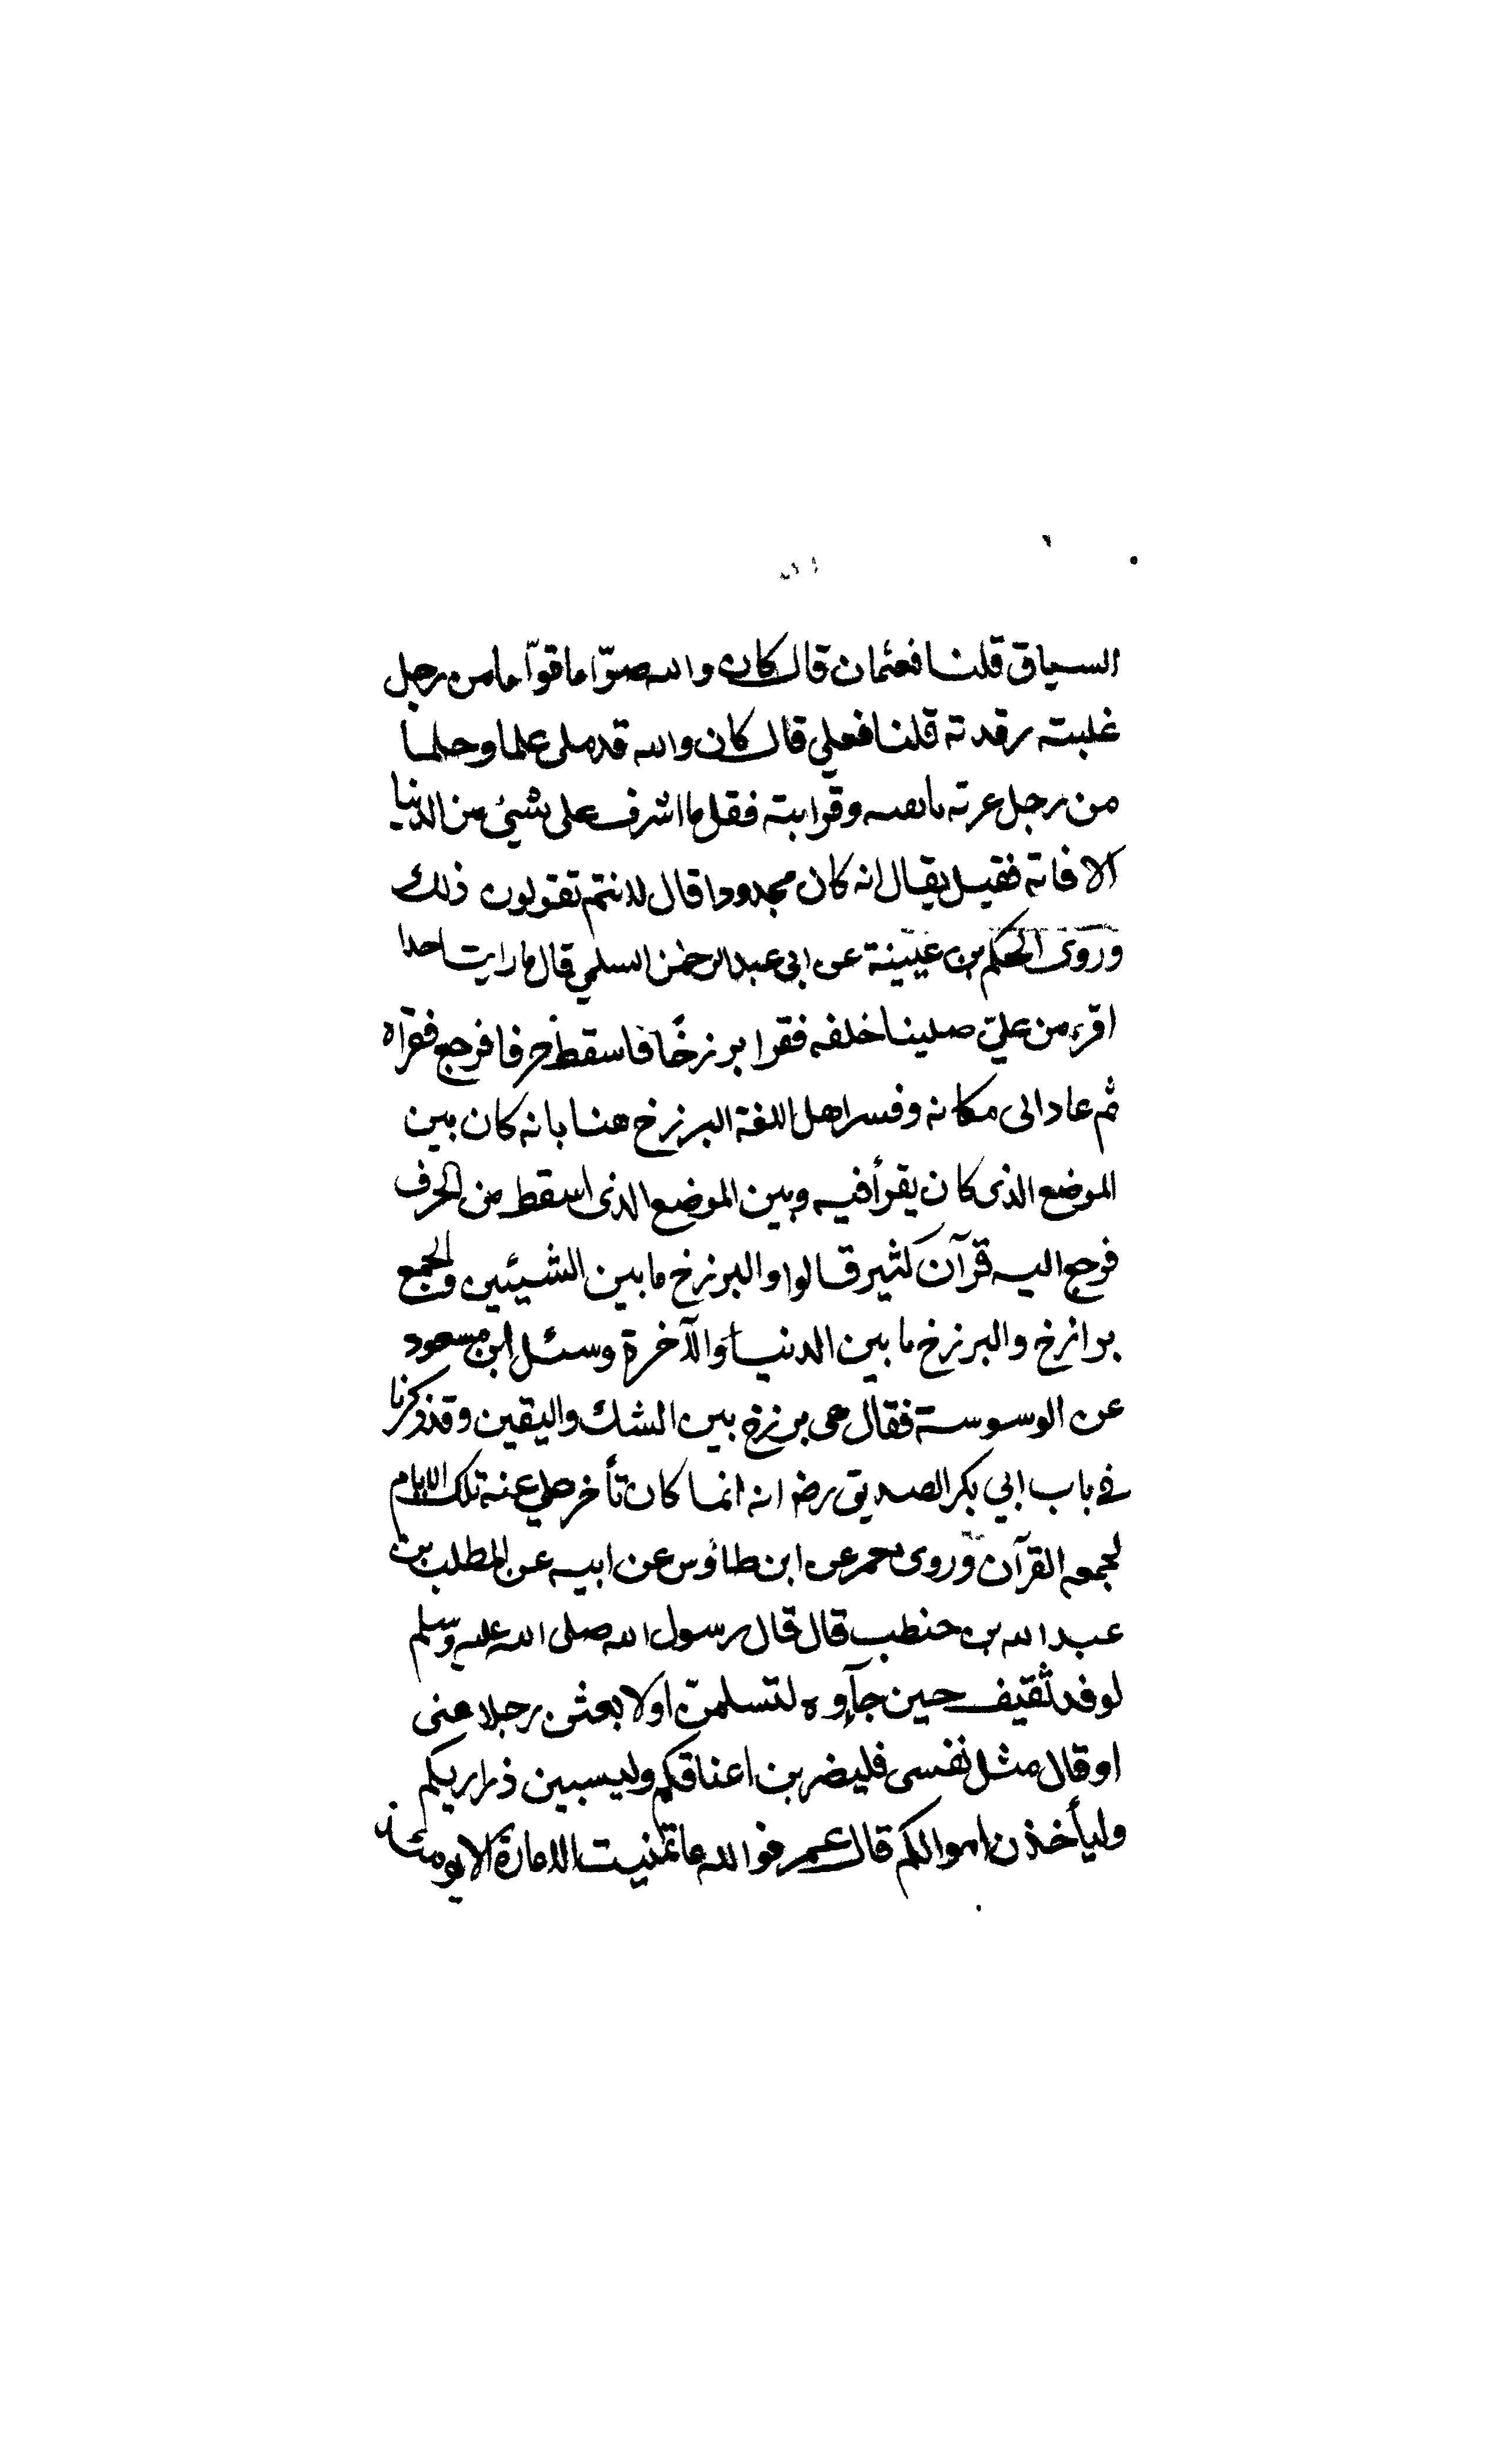 السياق قلنا فعثمان قال كان والله صوّاما قوّاما من رجل
غلبته رقدته قلنا فعلي قال كان والله قد ملى علما وحلما
من رجل عرته وقرابته فقل ما اشرف على شيئ من الدنيا
الا فاته فقيل يقال انه كان مجدودا قال لانتم تقولون ذلك
وروى الحكم بن عيينة عن ابي عبد الرحمن السلمي قال ما رايت احدا
اقرء من عليّ صلينا خلفه فقرا برزخًا فاسقط حرفا فرجع فقراه
ثم عاد الى مكانه وفسر اهل اللغة البرزخ هنا بانه كان بين
الموضع الذى كان يقرأ فيه وبين الموضع الذى اسقط من الحرف
فرجع اليه قرآن كثير قالوا والبرزخ ما بين الشيئين والجمع
برازخ والبرزخ ما بين الدنيا والآخرة وسئل ابن مسعود
عن الوسوسة فقال هى برزخ بين الشك واليقين وقد ذكرنا
في باب ابي بكر الصديق رضه انه انما كان تأخر علي عنه تلك الايام
لجمعه القرآن وروى معمر عن ابن طاؤس عن ابيه عن المطلب بن
عبد الله بن حنطب قال قال رسول الله صلى الله عليه وسلم
لوفد ثقيف حين جآؤه لتسلمنّ اولا بعثن رجلا منى
او قال مثل نفسى فليضربن اعناقكم وليسبين ذراريكم
وليأخذن اموالكم قال عمر فو الله ما تمنيت الامارة الا يومئذ